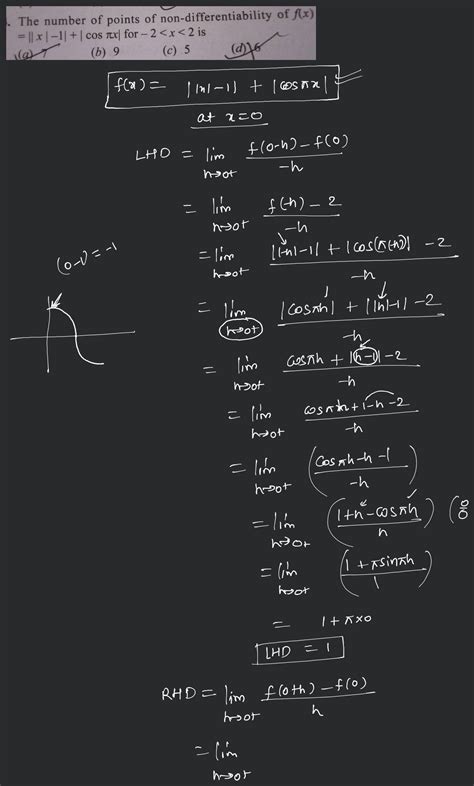 . The number of points of non-differentiability of f(x)
= || x | −1| + | cos πx| for − 2 < x < 2 is
(a) 7 (b) 9 (c) 5 (d) 6
f(x) = ||x|−1| + |cosπx|
at x=0
LHD = lim h→0+ f(0−h) − f(0) / −h
= lim h→0+ f(−h) − 2 / −h
= lim h→0+ ||−h|−1| + |cos(π(−h))| − 2 / −h
(0−1) = −1
= lim h→0+ |cosπh| + ||h|−1| − 2 / −h
= lim h→0+ cosπh + |h−1| − 2 / −h
= lim h→0+ cosπh + 1−h − 2 / −h
= lim h→0+ (cosπh − h − 1 / −h)
= lim h→0+ (1+h − cosπh / h) (0/0
= lim h→0+ (1 + π sinπh / 1)
= 1 + π×0
LHD = 1
RHD = lim h→0+ f(0+h) − f(0) / h
= lim h→0+